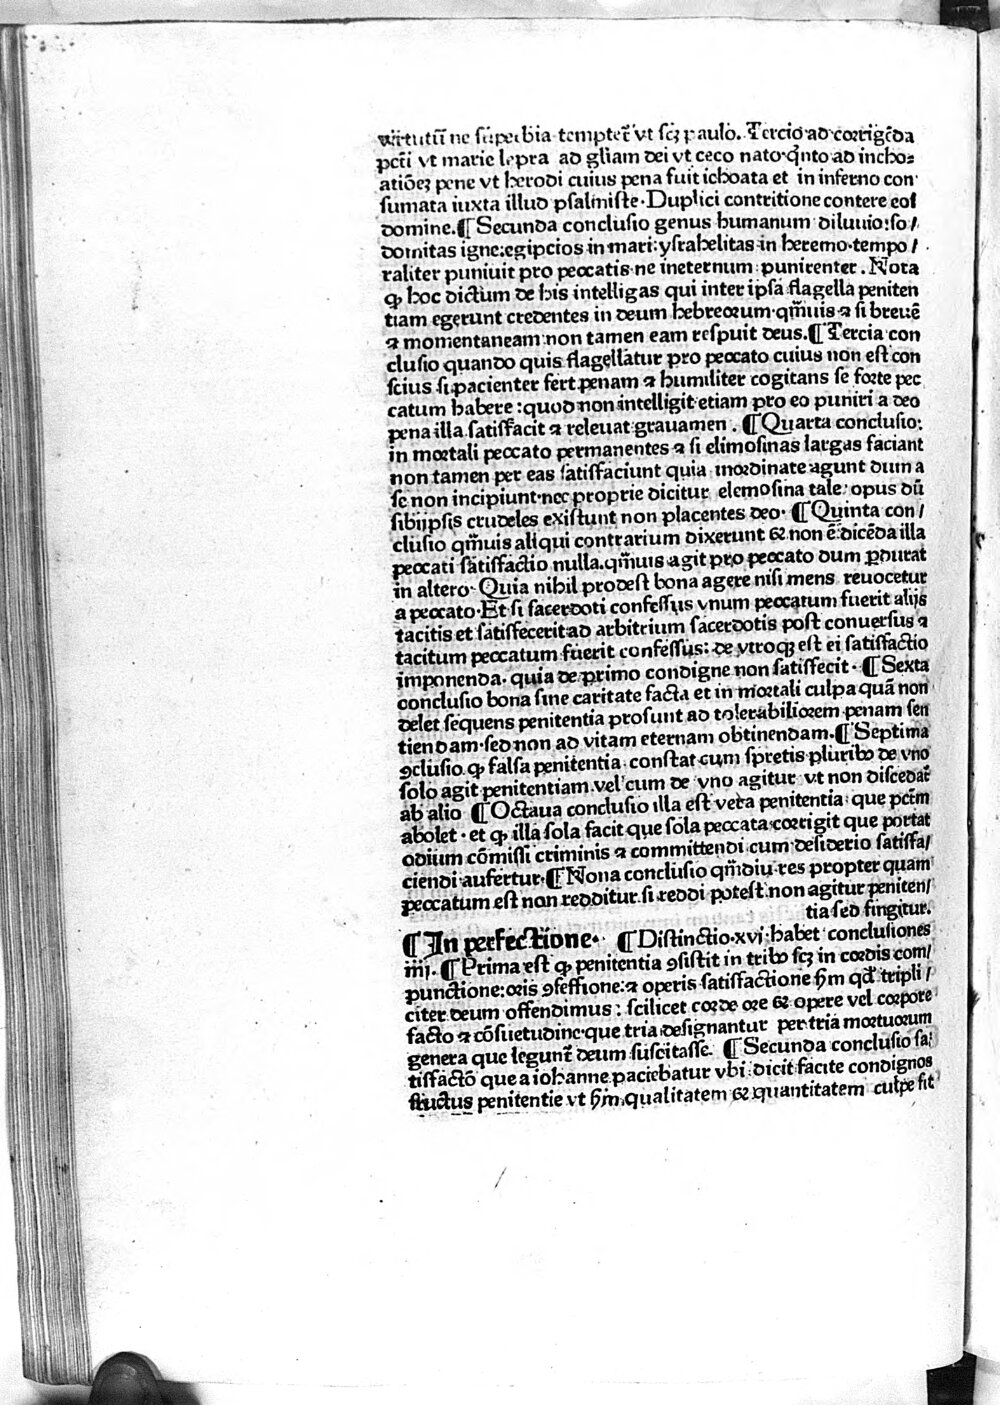 virtutū ne superbia temptet᷑ vt scꝫ paulo. Tercio ad corrigēda
pctī vt marie lepra ad gliam dei vt ceco nato·qͥnto ad incho⸗
atiōeꝫ pene vt herodi cuius pena fuit ichoata et in inferno con
sumata iuxta illud psalmiste·Duplici contritione contere eos
domine.¶Secunda conclusio genus humanum diluuio:so/
domitas igne:egipcios in mari:ysrahelitas in heremo·tempo/
raliter puniuit pro peccatis·ne ineternum punirenter. Nota
ꝙ hoc dictum de his intelligas qui inter ipsa flagella peniten
tiam egerunt credentes in deum hebreorum·qm̄uis ⁊ si breuē
⁊ momentaneam non tamen eam respuit deus.¶Tercia con
clusio quando quis flagellatur pro peccato cuius non est con
scius si pacienter fert penam ⁊ humiliter cogitans se forte pec
catum habere:quod non intelligit etiam pro eo puniri a deo
pena illa satisfacit ⁊ releuat grauamen. ¶Quarta conclusio:
in mortali peccato permanentes ⁊ si elimosinas largas faciant
non tamen per eas satisfaciunt quia inordinate agunt dum a
se non incipiunt·nec proprie dicitur elemosina tale opus dū
sibiipsis crudeles existunt non placentes deo· ¶Quinta con/
clusio qm̄uis aliqui contrarium dixerunt & non ē dicēda illa
peccati satisfactio nulla.qm̄uis agit pro peccato dum ꝑdurat
in altero· Quia nihil prodest bona agere nisi mens reuocetur
a peccato·Et si sacerdoti confessus vnum peccatum fuerit alijs
tacitis et satisfecerit ad arbitrium sacerdotis post conuersus ⁊
tacitum peccatum fuerit confessus: de vtroqꝫ est ei satisfactio
imponenda. quia de primo condigne non satisfecit· ¶Sexta
conclusio bona sine caritate facta et in mortali culpa quā non
delet sequens penitentia prosunt ad tolerabiliorem penam sen
tiendam·sed non ad vitam eternam obtinendam.¶Septima
ꝯclusio ꝙ falsa penitentia constat cum spretis pluribꝰ de vno
solo agit penitentiam vel cum de vno agitur vt non discedat᷑
ab alio ¶Octaua conclusio illa est vera penitentia que pctm̄
abolet·et ꝙ illa sola facit que sola peccata corrigit que portat
odium cōmissi criminis ⁊ committendi cum desiderio satisfa/
ciendi aufertur.¶Nona conclusio qm̄diu res propter quam
peccatum est non redditur si reddi potest non agitur peniten/
tia sed fingitur.
¶In perfectione· ¶Distinctio·xvi·habet conclusiones
iiij. ¶Prima est ꝙ penitentia ꝯsistit in tribꝰ scꝫ in cordis com/
punctione:oris ꝯfessione:⁊ operis satisfactione ẜm qd̄ tripli/
citer deum offendimus: scilicet corde ore & opere vel corpore
facto ⁊ cōsuetudine·que tria designantur per tria mortuorum
genera que legunt᷑ deum suscitasse. ¶Secunda conclusio sa:
tisfactō que a iohanne paciebatur vbi dicit facite condignos
fructus penitentie vt ẜm qualitatem & quantitatem culpe sit